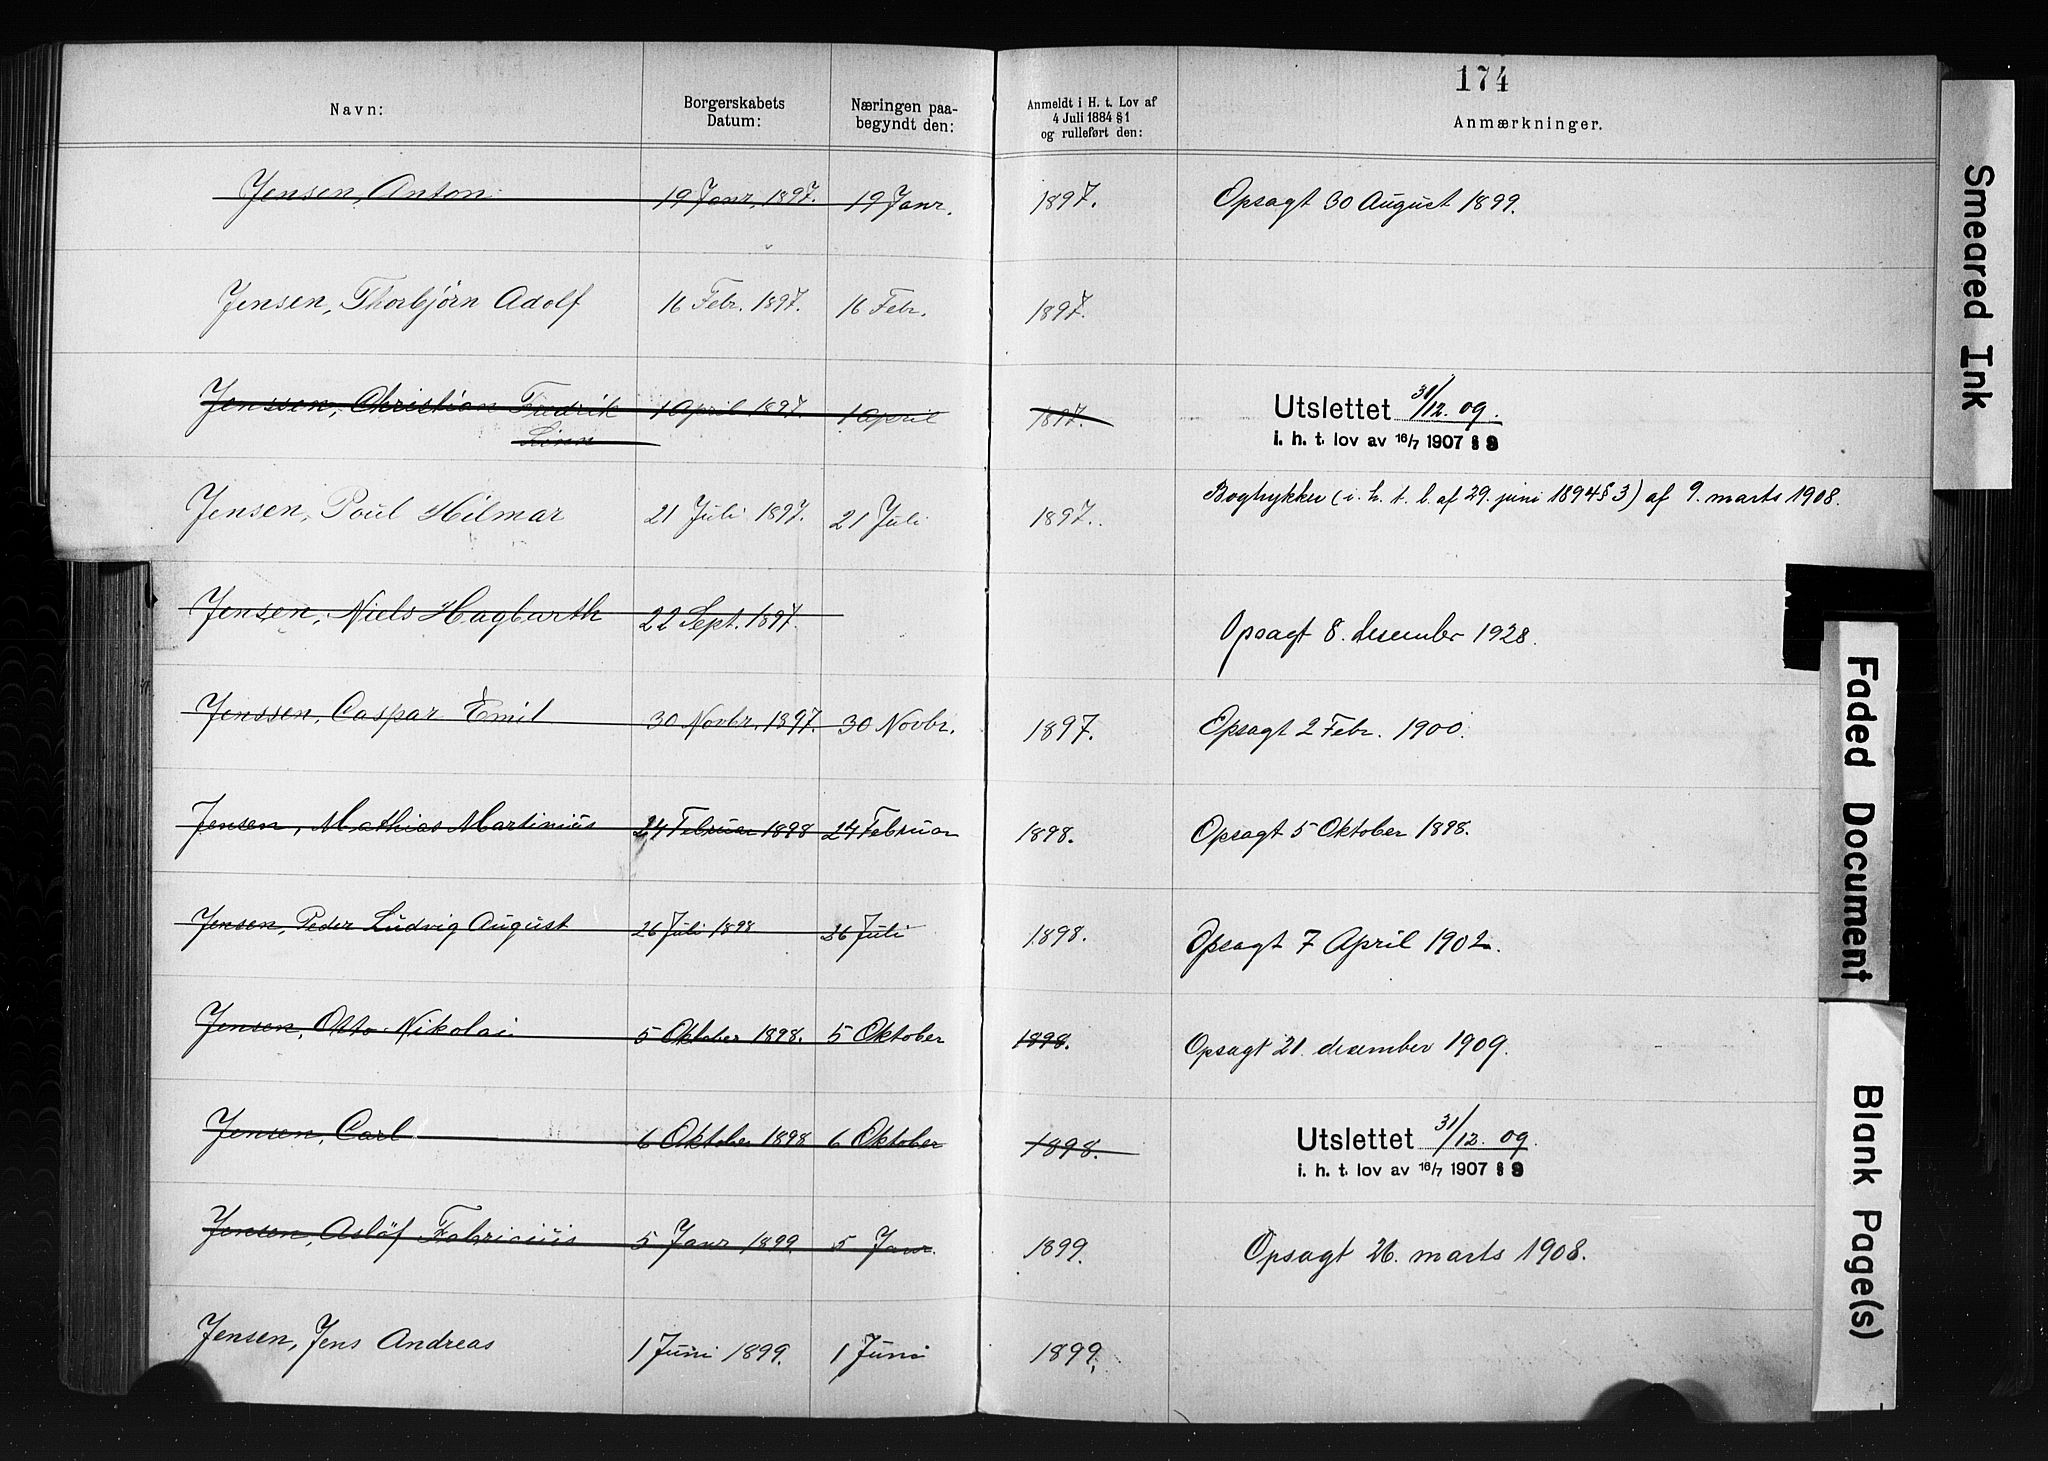 174
Navn: Borgerskabets Datum: Næringen paa-begyndt den: Anmeldt i H. t. Lov af 4 Juli 1884 § 1 og rulleført den: Anmærkninger.
Jensen, Anton 19 Janr. 1897. 19 Janr. 1897. Opsagt 30 August 1899.
Jensen, Thorbjörn Adolf 16 Febr. 1897. 16 Febr. 1897.
Jenssen, Christian Fredrik 1 April 1897. 1 April 1897. Utslettet 31/12. 09.
i. h. t. lov av 16/7 1907 § 9
Jensen, Poul Hilmar 21 Juli 1897. 21 Juli 1897. (i. h. t. l. af 29. juni 1894 § 3) af 9. marts 1908.
Jensen, Niels Hagbarth 22 Sept. 1897. Opsagt 8. desember 1928.
Jenssen, Caspar Emil 30 Novbr. 1897. 30 Novbr. 1897. Opsagt 2 Febr. 1900.
Jensen, Mathias Martinius 24 Februar 1898 24 Februar 1898. Opsagt 5 Oktober 1898.
Jensen, Peder Ludvig August 26 Juli 1898 26 Juli 1898. Opsagt 7 April 1902.
Jensen, Otto Nikolai. 5 Oktober 1898. 5 Oktober 1898. Opsagt 21. desember 1909.
Jensen, Carl. 6 Oktober 1898 6 Oktober 1898. Utslettet 31/12. 09.
i. h. t. lov av 16/7 1907 § 9
Jensen, Aslöf Fabricius 5 Janr 1899. 5 Janr. 1899. Opsagt 26. marts 1908.
Jensen, Jens Andreas 1 Juni 1899. 1 Juni 1899.
Smeared Ink
Faded Document
Blank Page(s)